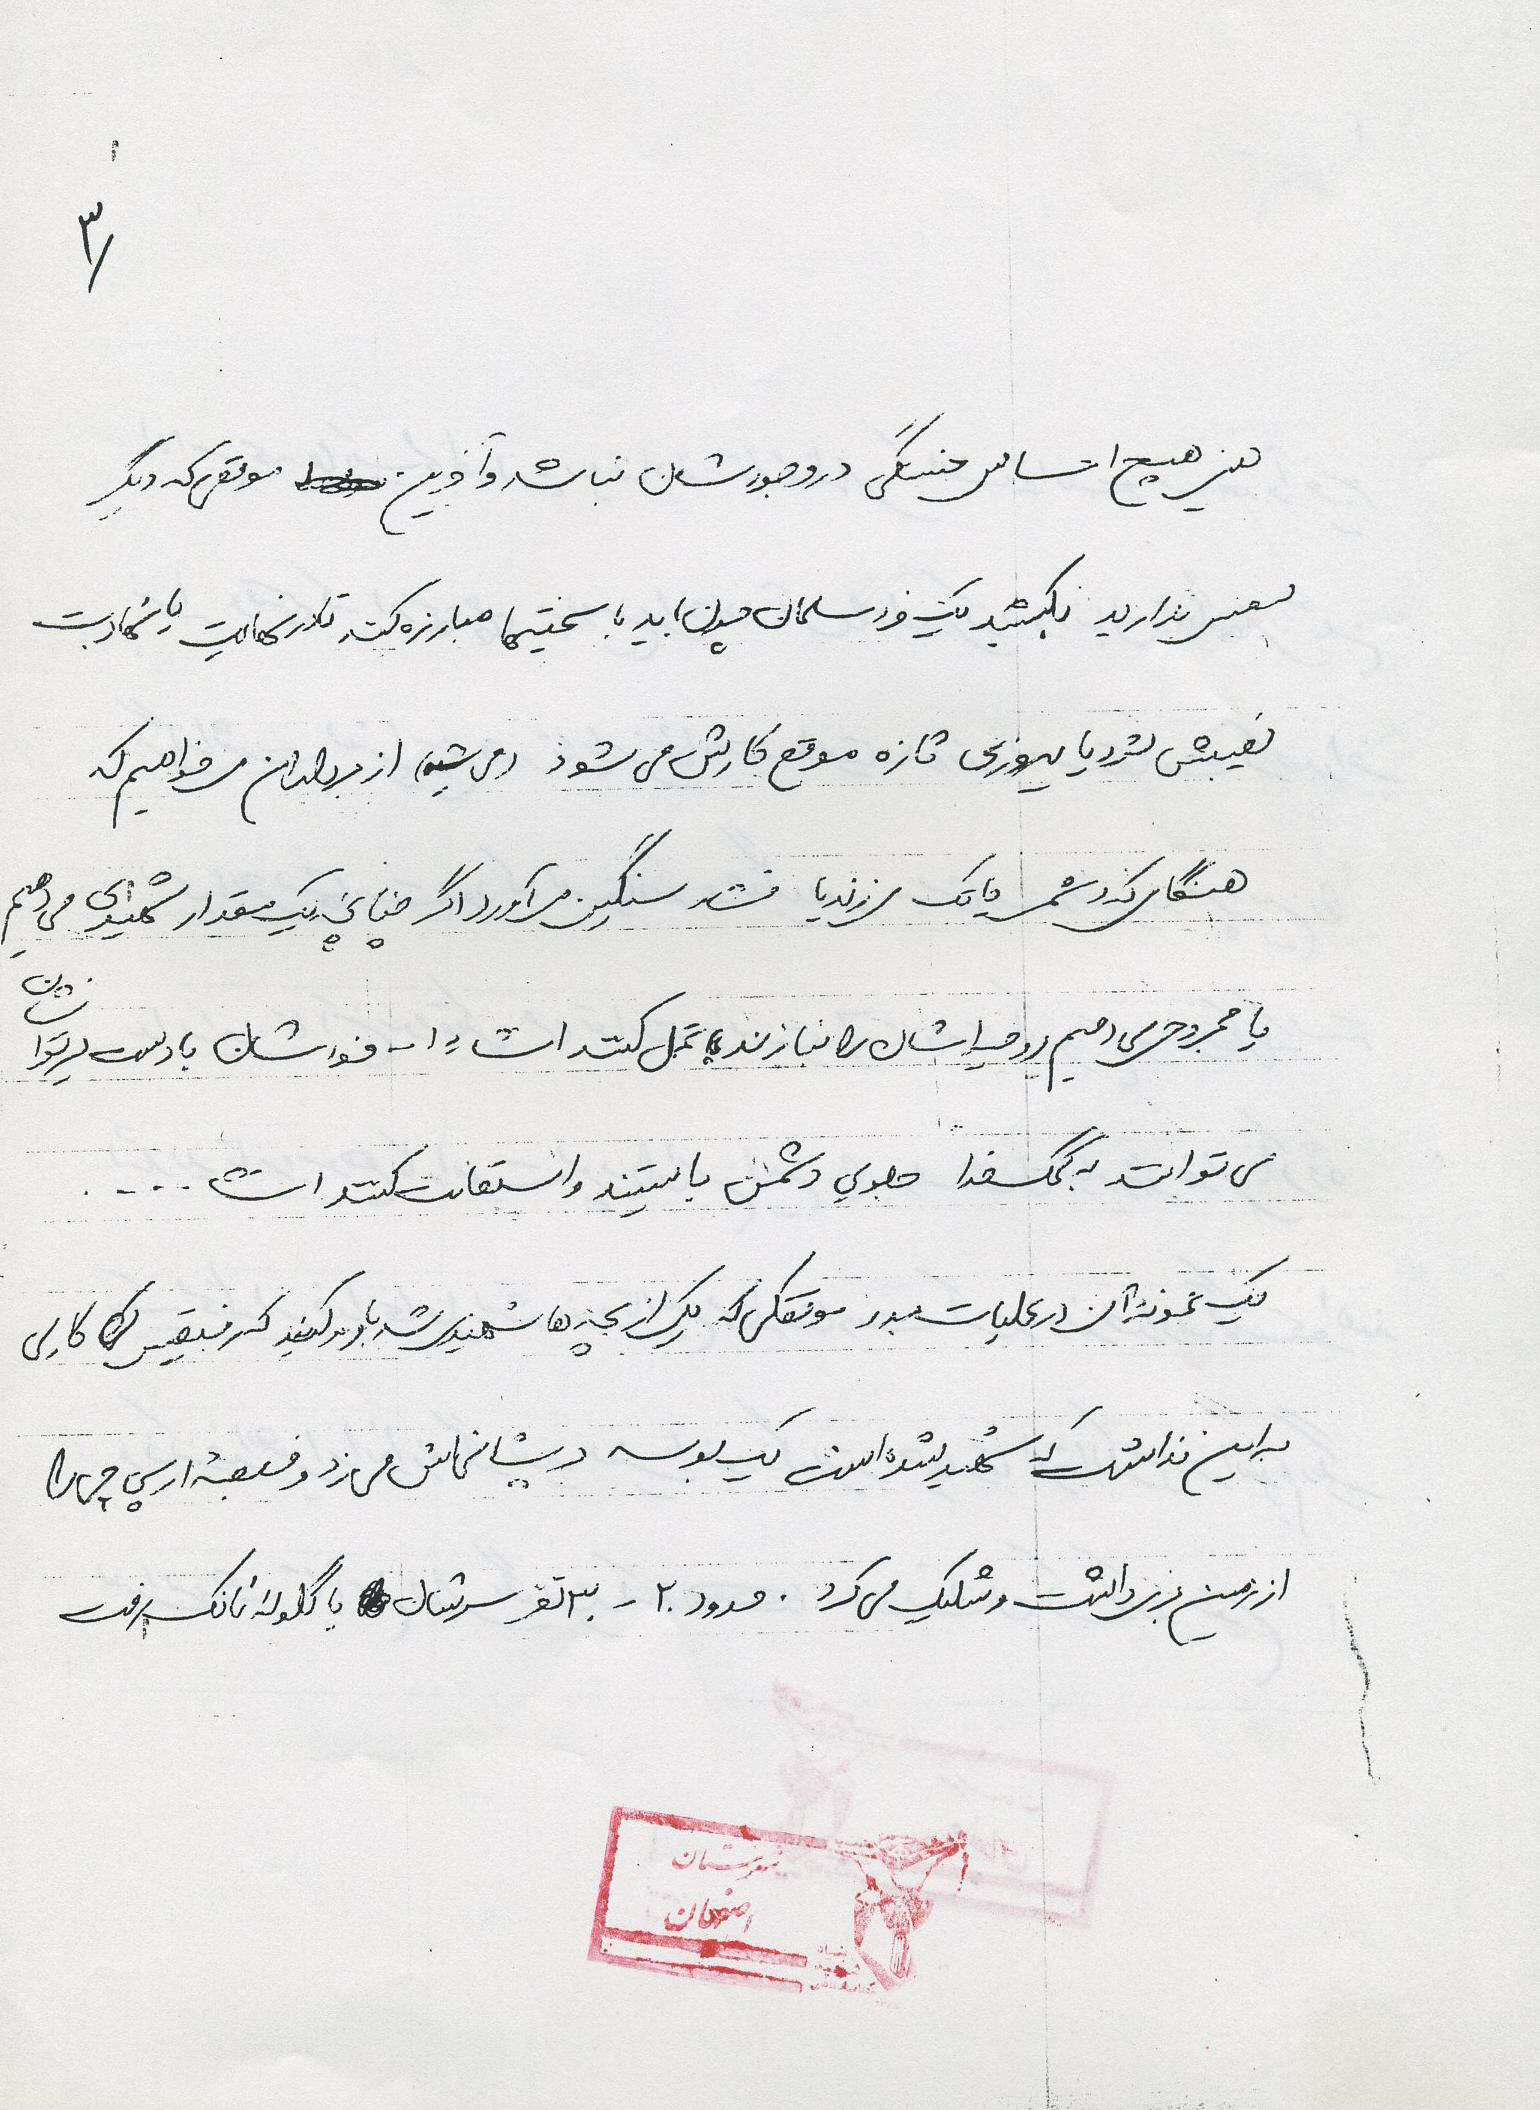 ۳/
هیچ احساس خستگی در وجودشان نباشد و آفرین موقعی که دیگر
نفس ندارید بکشید یک فرد مسلمان چون باید با سختیها مبارزه کند تا در نهایت یا شهادت
نصیبش شود یا پیروزی تازه موقع کارش می شود از برادران می خواهیم که
هنگامی که دشمن پاتک می زند یا فشار سنگین می آورد اگر چنانچه یک مقدار شهیدی می دهیم
یا مجروح می دهیم روحیه اشان را نبازند تحمل کنند انشاءا... خودشان با دست پر توانشان
می توانند به کمک خدا جلوی دشمن بایستند و استقامت کنند انشا ....
یک نمونه اش در عملیات بدر موقعی که یکی از بچه ها شهید می شد باور کنید که رفیقش کاری
به این نداشت که شهید شده است یک بوسه در پیشانی اش می زد و قبضه آرپی جی را
از زمین برمی داشت و شلیک می کرد. حدود ۲۰ - ۳۰ نفر سرشان با گلوله تانک رفت
شهرستان
اصفهان